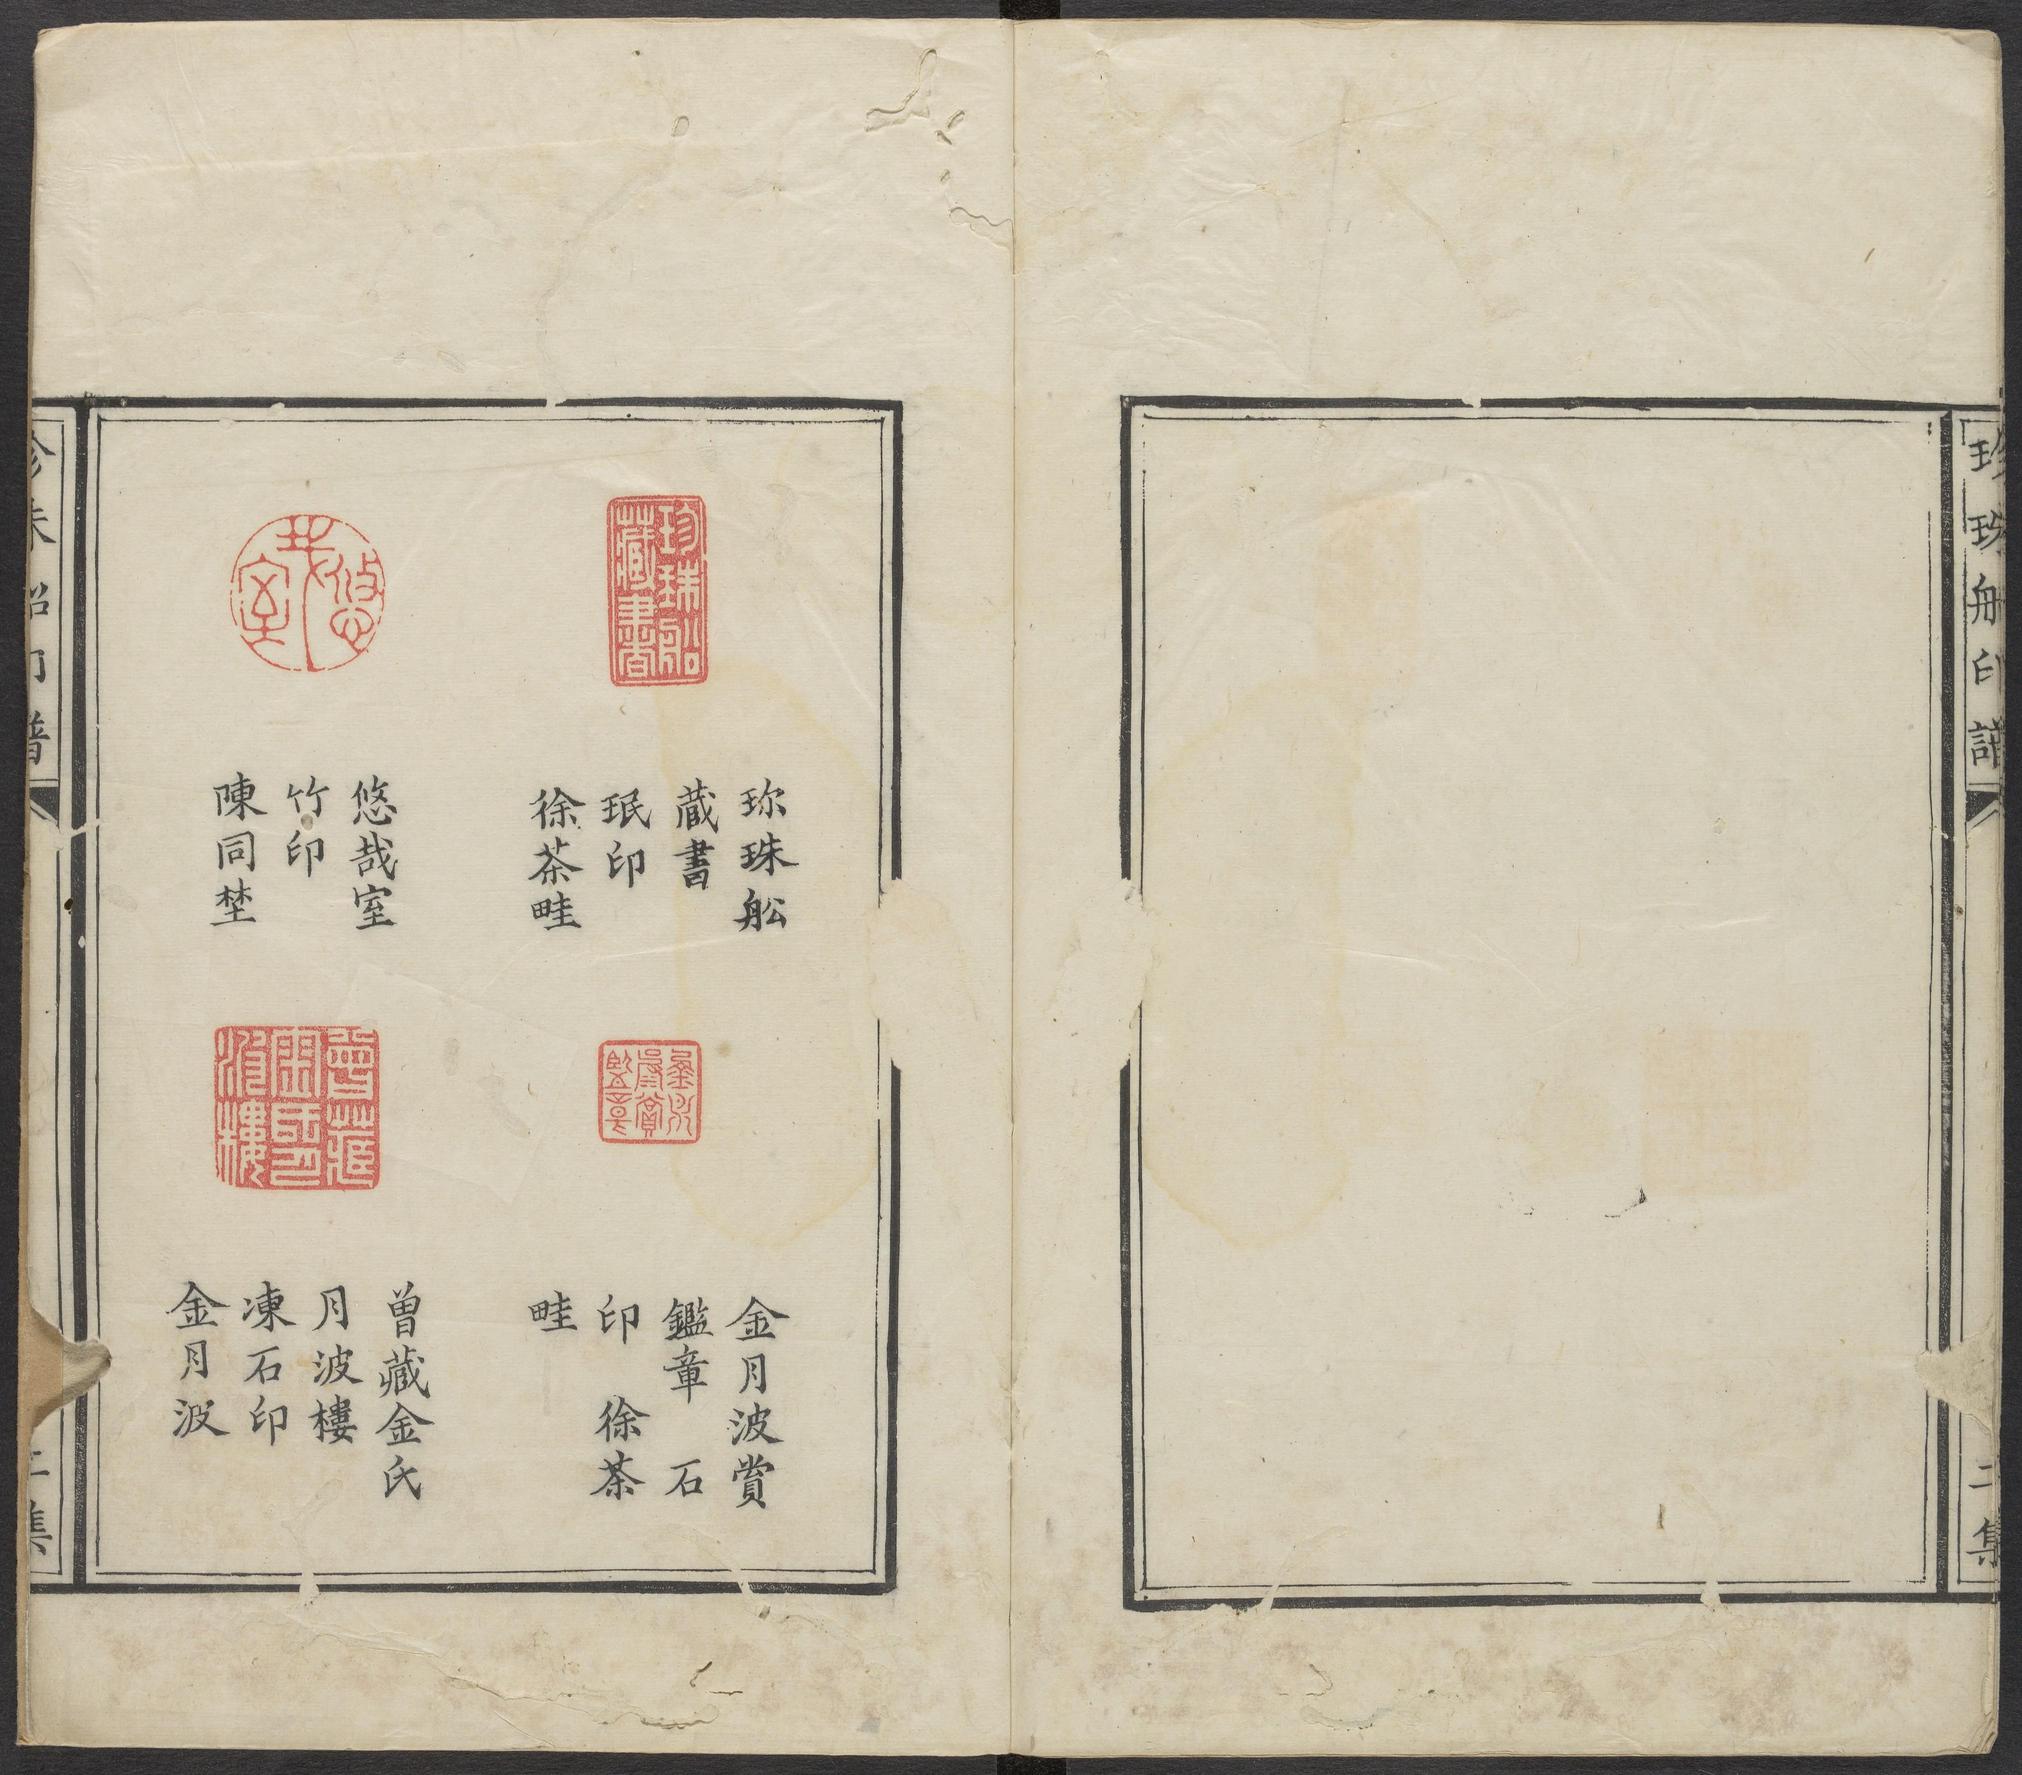 珍珠船印譜
二集
珎珠舩
蔵書
珉印
徐茶畦
金月波賞
鑑章　石
印　徐茶
畦
悠哉室
竹印
陳同埜
曽藏金氏
月波樓
凍石印
金月波
珍珠船藏書
金月波賞鑑章
悠哉室
曾藏金氏月波樓
珍珠船印譜
二集